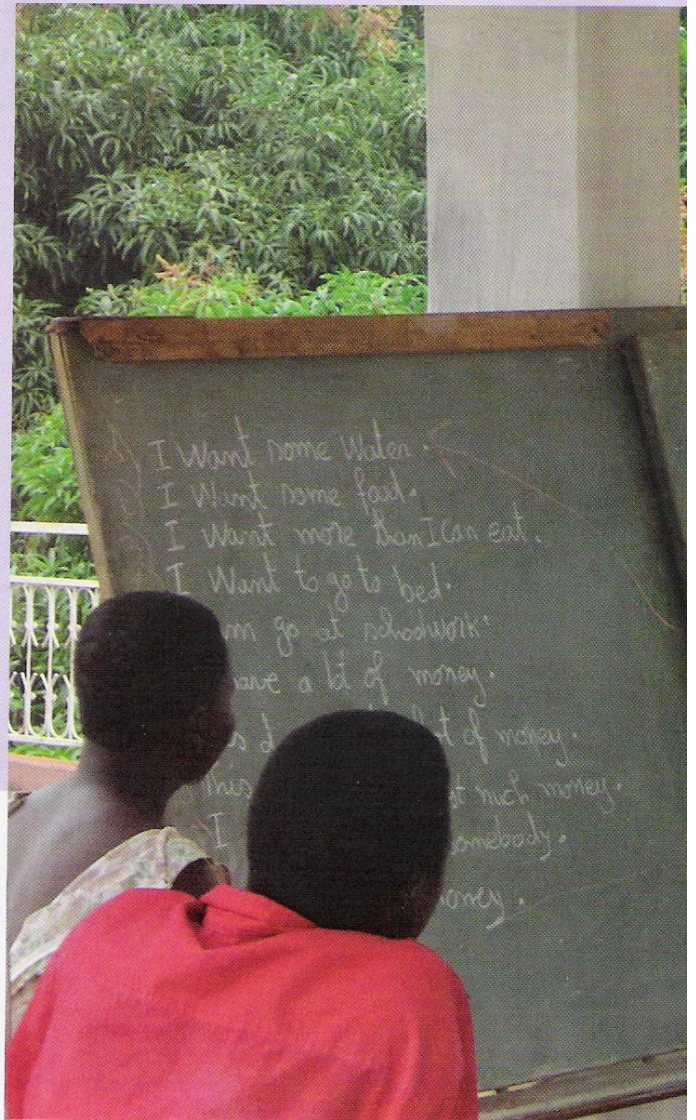 I Want some Water.
I Want some food.
I Want more than I can eat.
I Want to go to bed.
go at schoolwork.
have a lot of money.
of money.
this much money.
I somebody.
money.